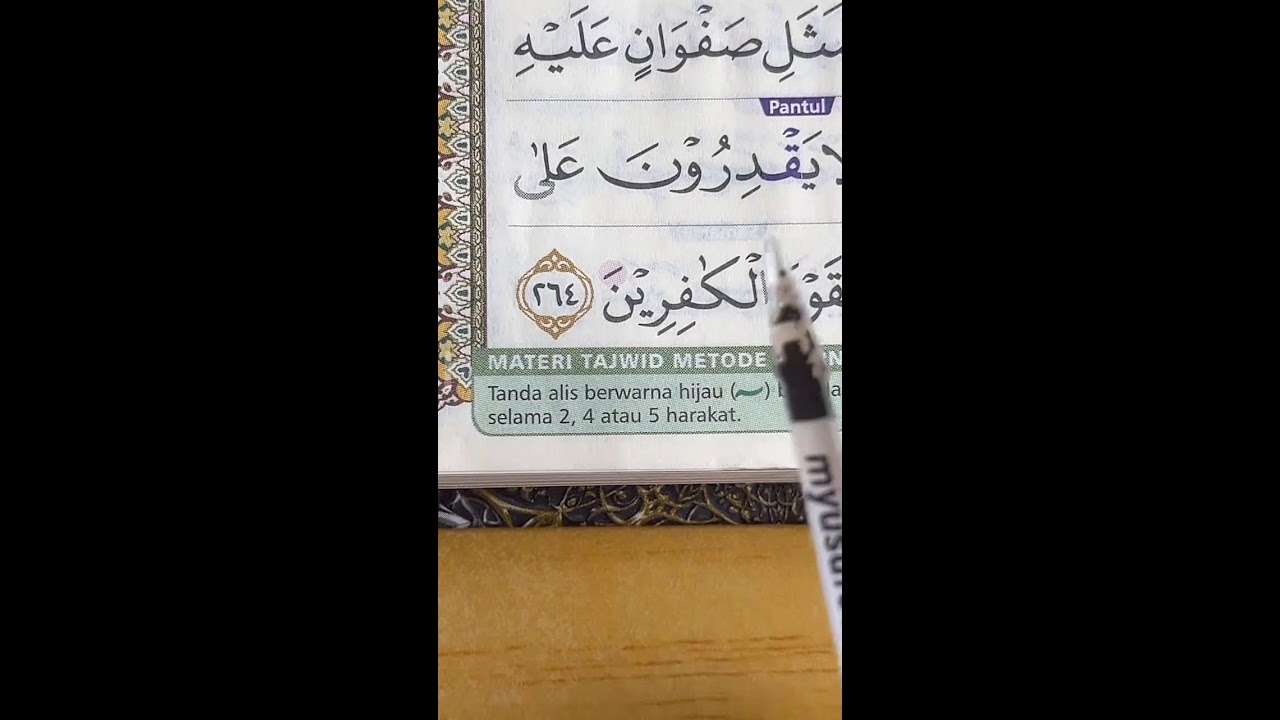 مَثَلِ صَفْوَانٍ عَلَيْهِ
Pantul
لَا يَقْدِرُوْنَ عَلٰى
الْكٰفِرِيْنَ ٢٦٤
MATERI TAJWID METODE
Tanda alis berwarna hijau (~)
selama 2, 4 atau 5 harakat.